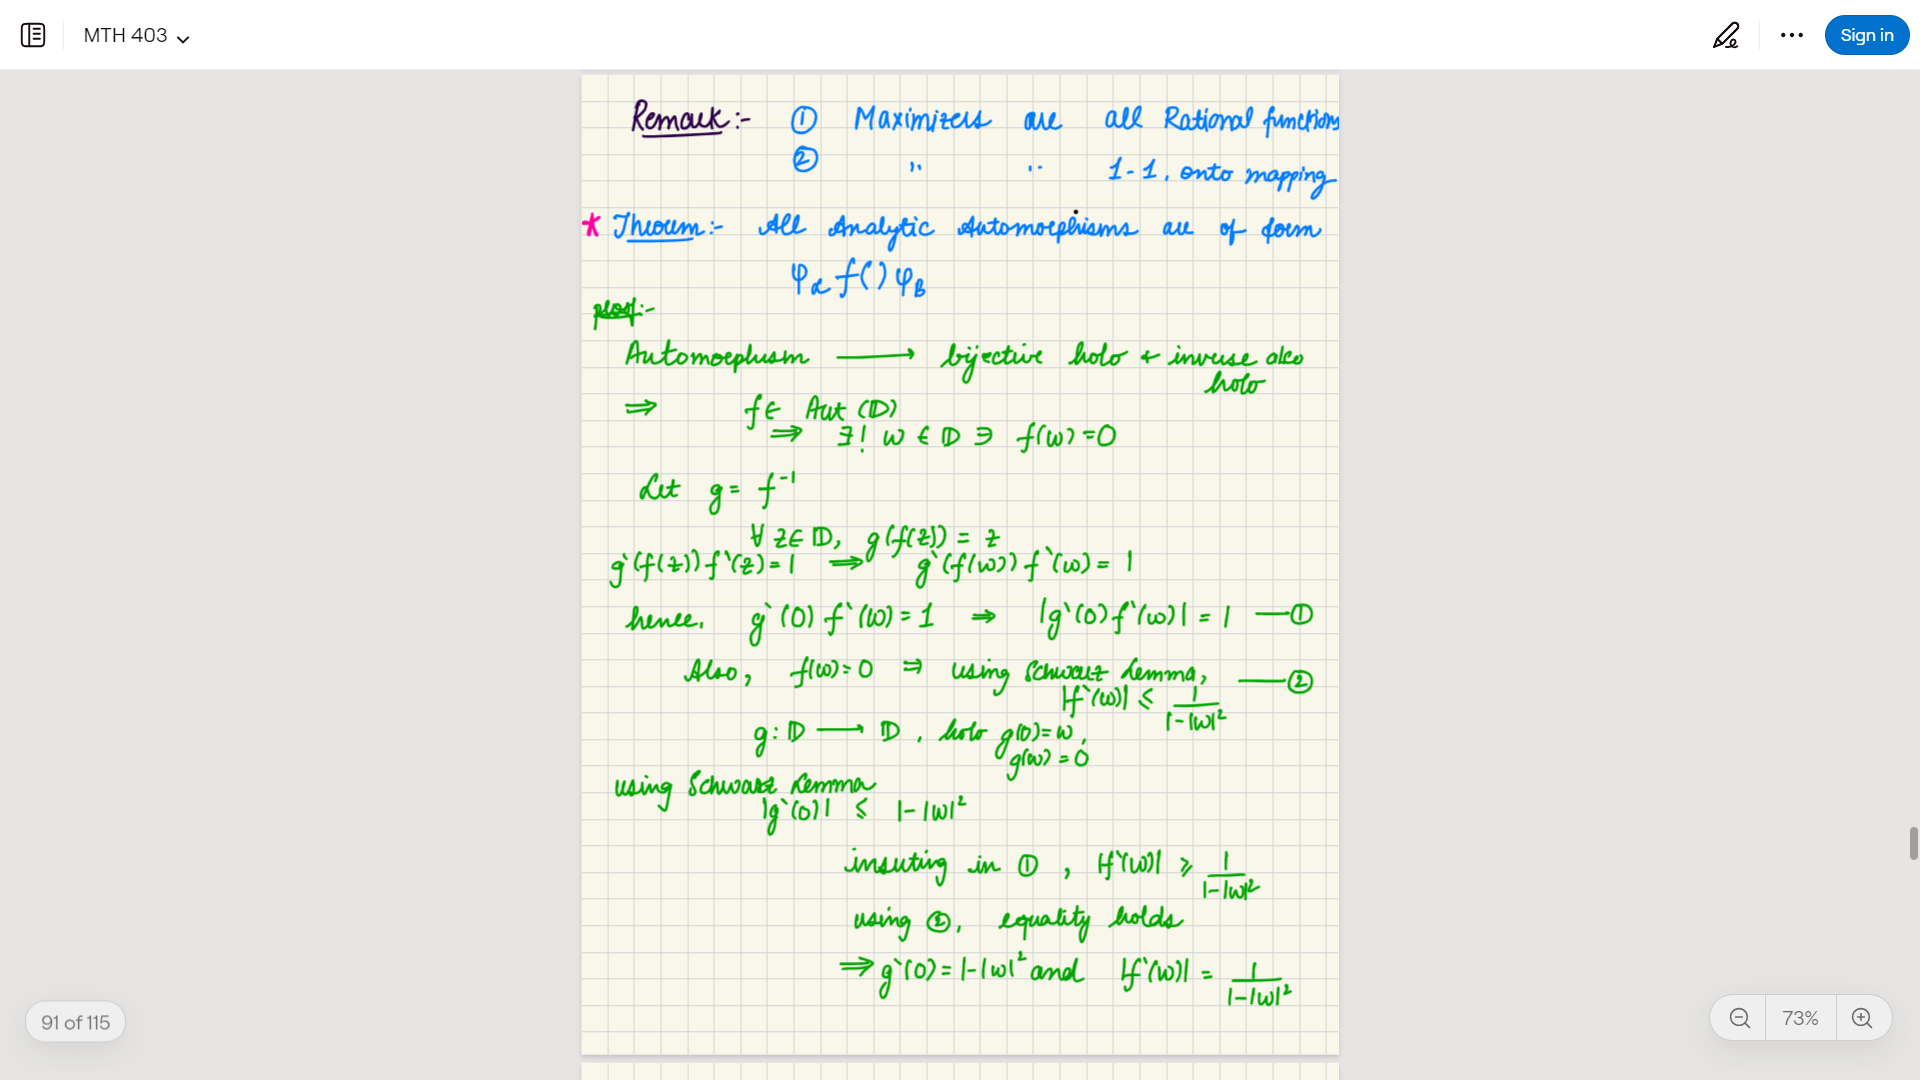 MTH 403
Sign in
Remark:- ① Maximizers are all Rational functions
② " " 1-1, onto mapping
* Theorem:- All Analytic Automorphisms are of form
φ_α f( ) φ_β
proof:-
Automorphism ⟶ bijective holo & inverse also
holo
⇒ f ∈ Aut (𝔻)
⇒ ∃! w ∈ 𝔻 ∋ f(w) = 0
Let g = f⁻¹
∀ z ∈ 𝔻, g(f(z)) = z
g`(f(z)) f`(z) = 1 ⟹ g`(f(w)) f`(w) = 1
hence, g`(0) f`(w) = 1 ⇒ |g`(0) f`(w)| = 1 —①
Also, f(w) = 0 ⇒ using Schwarz Lemma, —②
|f`(w)| ≤ 1/(1-|w|²)
g : 𝔻 ⟶ 𝔻, holo g(0) = w,
g(w) = 0
using Schwarz Lemma
|g`(0)| ≤ 1-|w|²
insuting in ①, |f`(w)| ≥ 1/(1-|w|²)
using ②, equality holds
⟹ g`(0) = 1-|w|² and |f`(w)| = 1/(1-|w|²)
91 of 115
73%